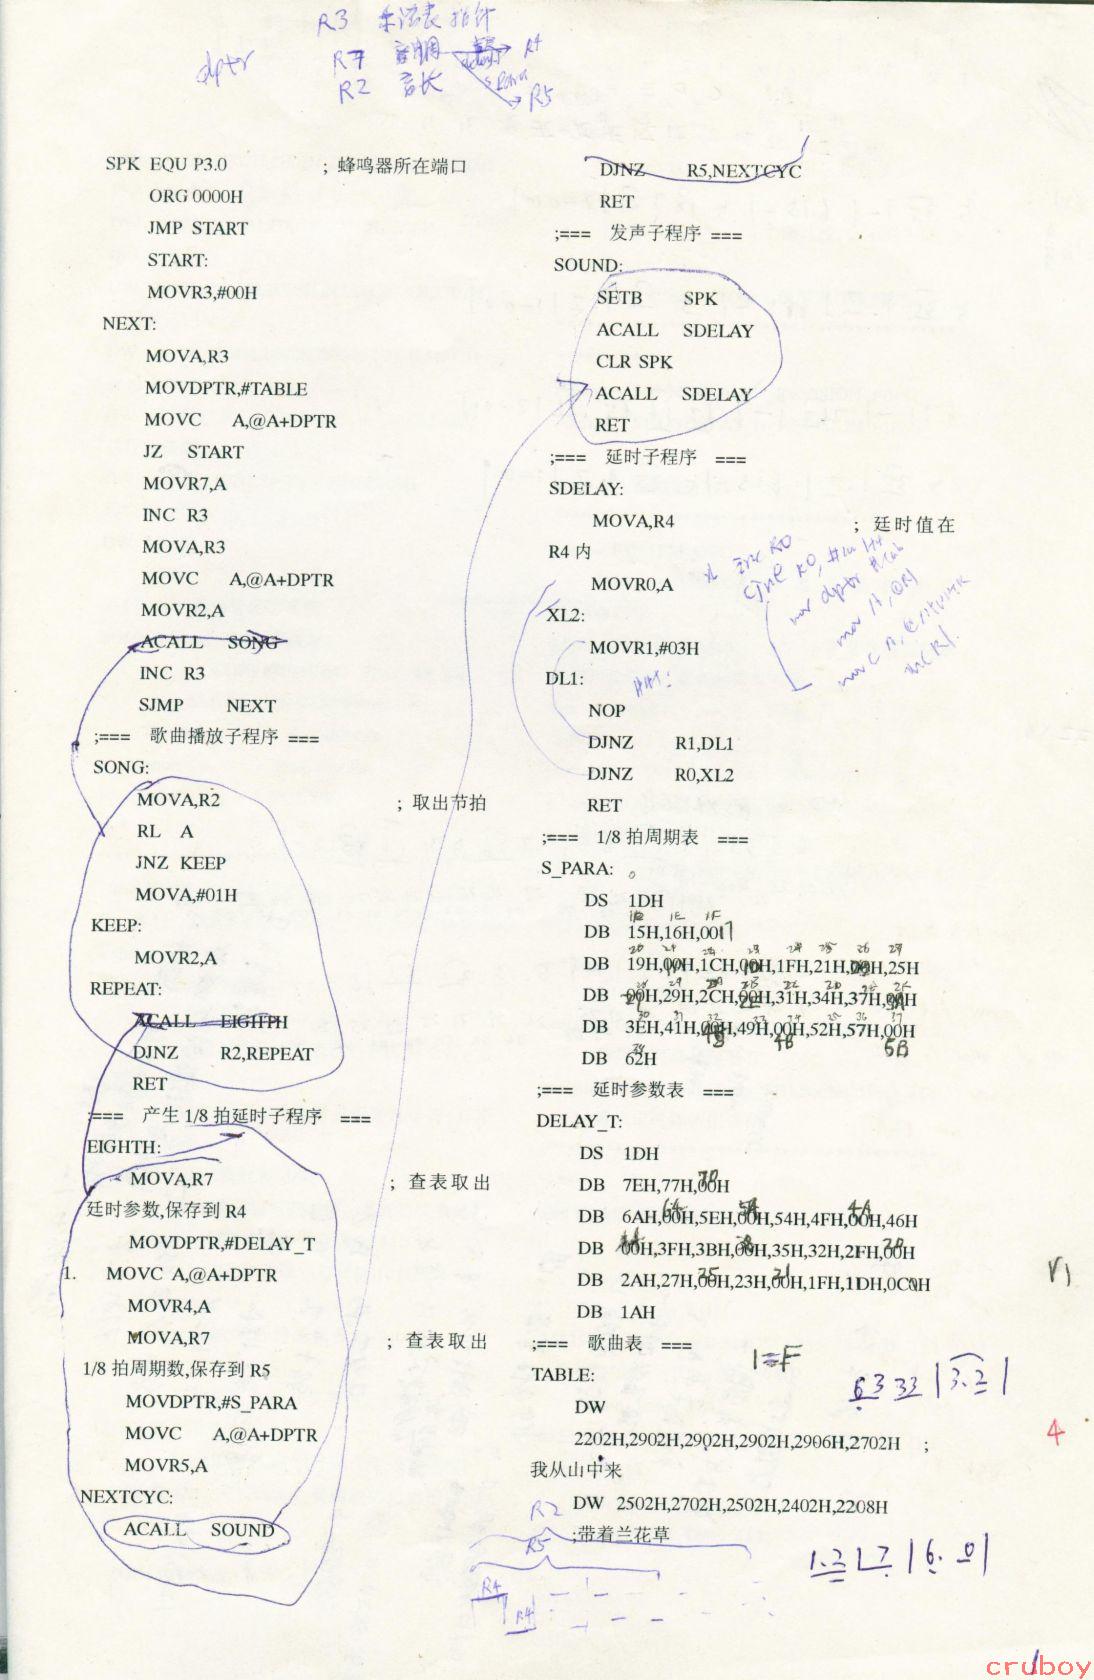 R3 乐谱表指针
dptr R7 音调 R4
R2 音长 R5
SPK EQU P3.0 ; 蜂鸣器所在端口
ORG 0000H
JMP START
START:
MOVR3,#00H
NEXT:
MOVA,R3
MOVDPTR,#TABLE
MOVC A,@A+DPTR
JZ START
MOVR7,A
INC R3
MOVA,R3
MOVC A,@A+DPTR
MOVR2,A
ACALL SONG
INC R3
SJMP NEXT
;=== 歌曲播放子程序 ===
SONG:
MOVA,R2 ; 取出节拍
RL A
JNZ KEEP
MOVA,#01H
KEEP:
MOVR2,A
REPEAT:
ACALL EIGHPH
DJNZ R2,REPEAT
RET
;=== 产生 1/8 拍延时子程序 ===
EIGHTH:
MOVA,R7 ; 查表取出
延时参数,保存到 R4
MOVDPTR,#DELAY_T
1. MOVC A,@A+DPTR
MOVR4,A
MOVA,R7 ; 查表取出
1/8 拍周期数,保存到 R5
MOVDPTR,#S_PARA
MOVC A,@A+DPTR
MOVR5,A
NEXTCYC:
ACALL SOUND
DJNZ R5,NEXTCYC
RET
;=== 发声子程序 ===
SOUND:
SETB SPK
ACALL SDELAY
CLR SPK
ACALL SDELAY
RET
;=== 延时子程序 ===
SDELAY:
MOVA,R4 ; 延时值在
R4 内
MOVR0,A
XL2:
MOVR1,#03H
DL1:
NOP
DJNZ R1,DL1
DJNZ R0,XL2
RET
inc R0
mov A, @R1
inc R1.
;=== 1/8 拍周期表 ===
S_PARA:
DS 1DH
DB 15H,16H,00
DB 19H,00H,1CH,00H,1FH,21H,00H,25H
DB 00H,29H,2CH,00H,31H,34H,37H,00H
DB 3EH,41H,00H,49H,00H,52H,57H,00H
DB 62H
;=== 延时参数表 ===
DELAY_T:
DS 1DH
DB 7EH,77H,00H
DB 6AH,00H,5EH,00H,54H,4FH,00H,46H
DB 00H,3FH,3BH,00H,35H,32H,2FH,00H
DB 2AH,27H,00H,23H,00H,1FH,1DH,0C0H
DB 1AH
;=== 歌曲表 ===
1=F
TABLE:
DW
6 3 33 | 3. 2 |
2202H,2902H,2902H,2902H,2906H,2702H ;
4
我从山中来
DW 2502H,2702H,2502H,2402H,2208H
;带着兰花草
R2
R5
R4
R4
1. 2 1 7 | 6. 0 |
cruboy